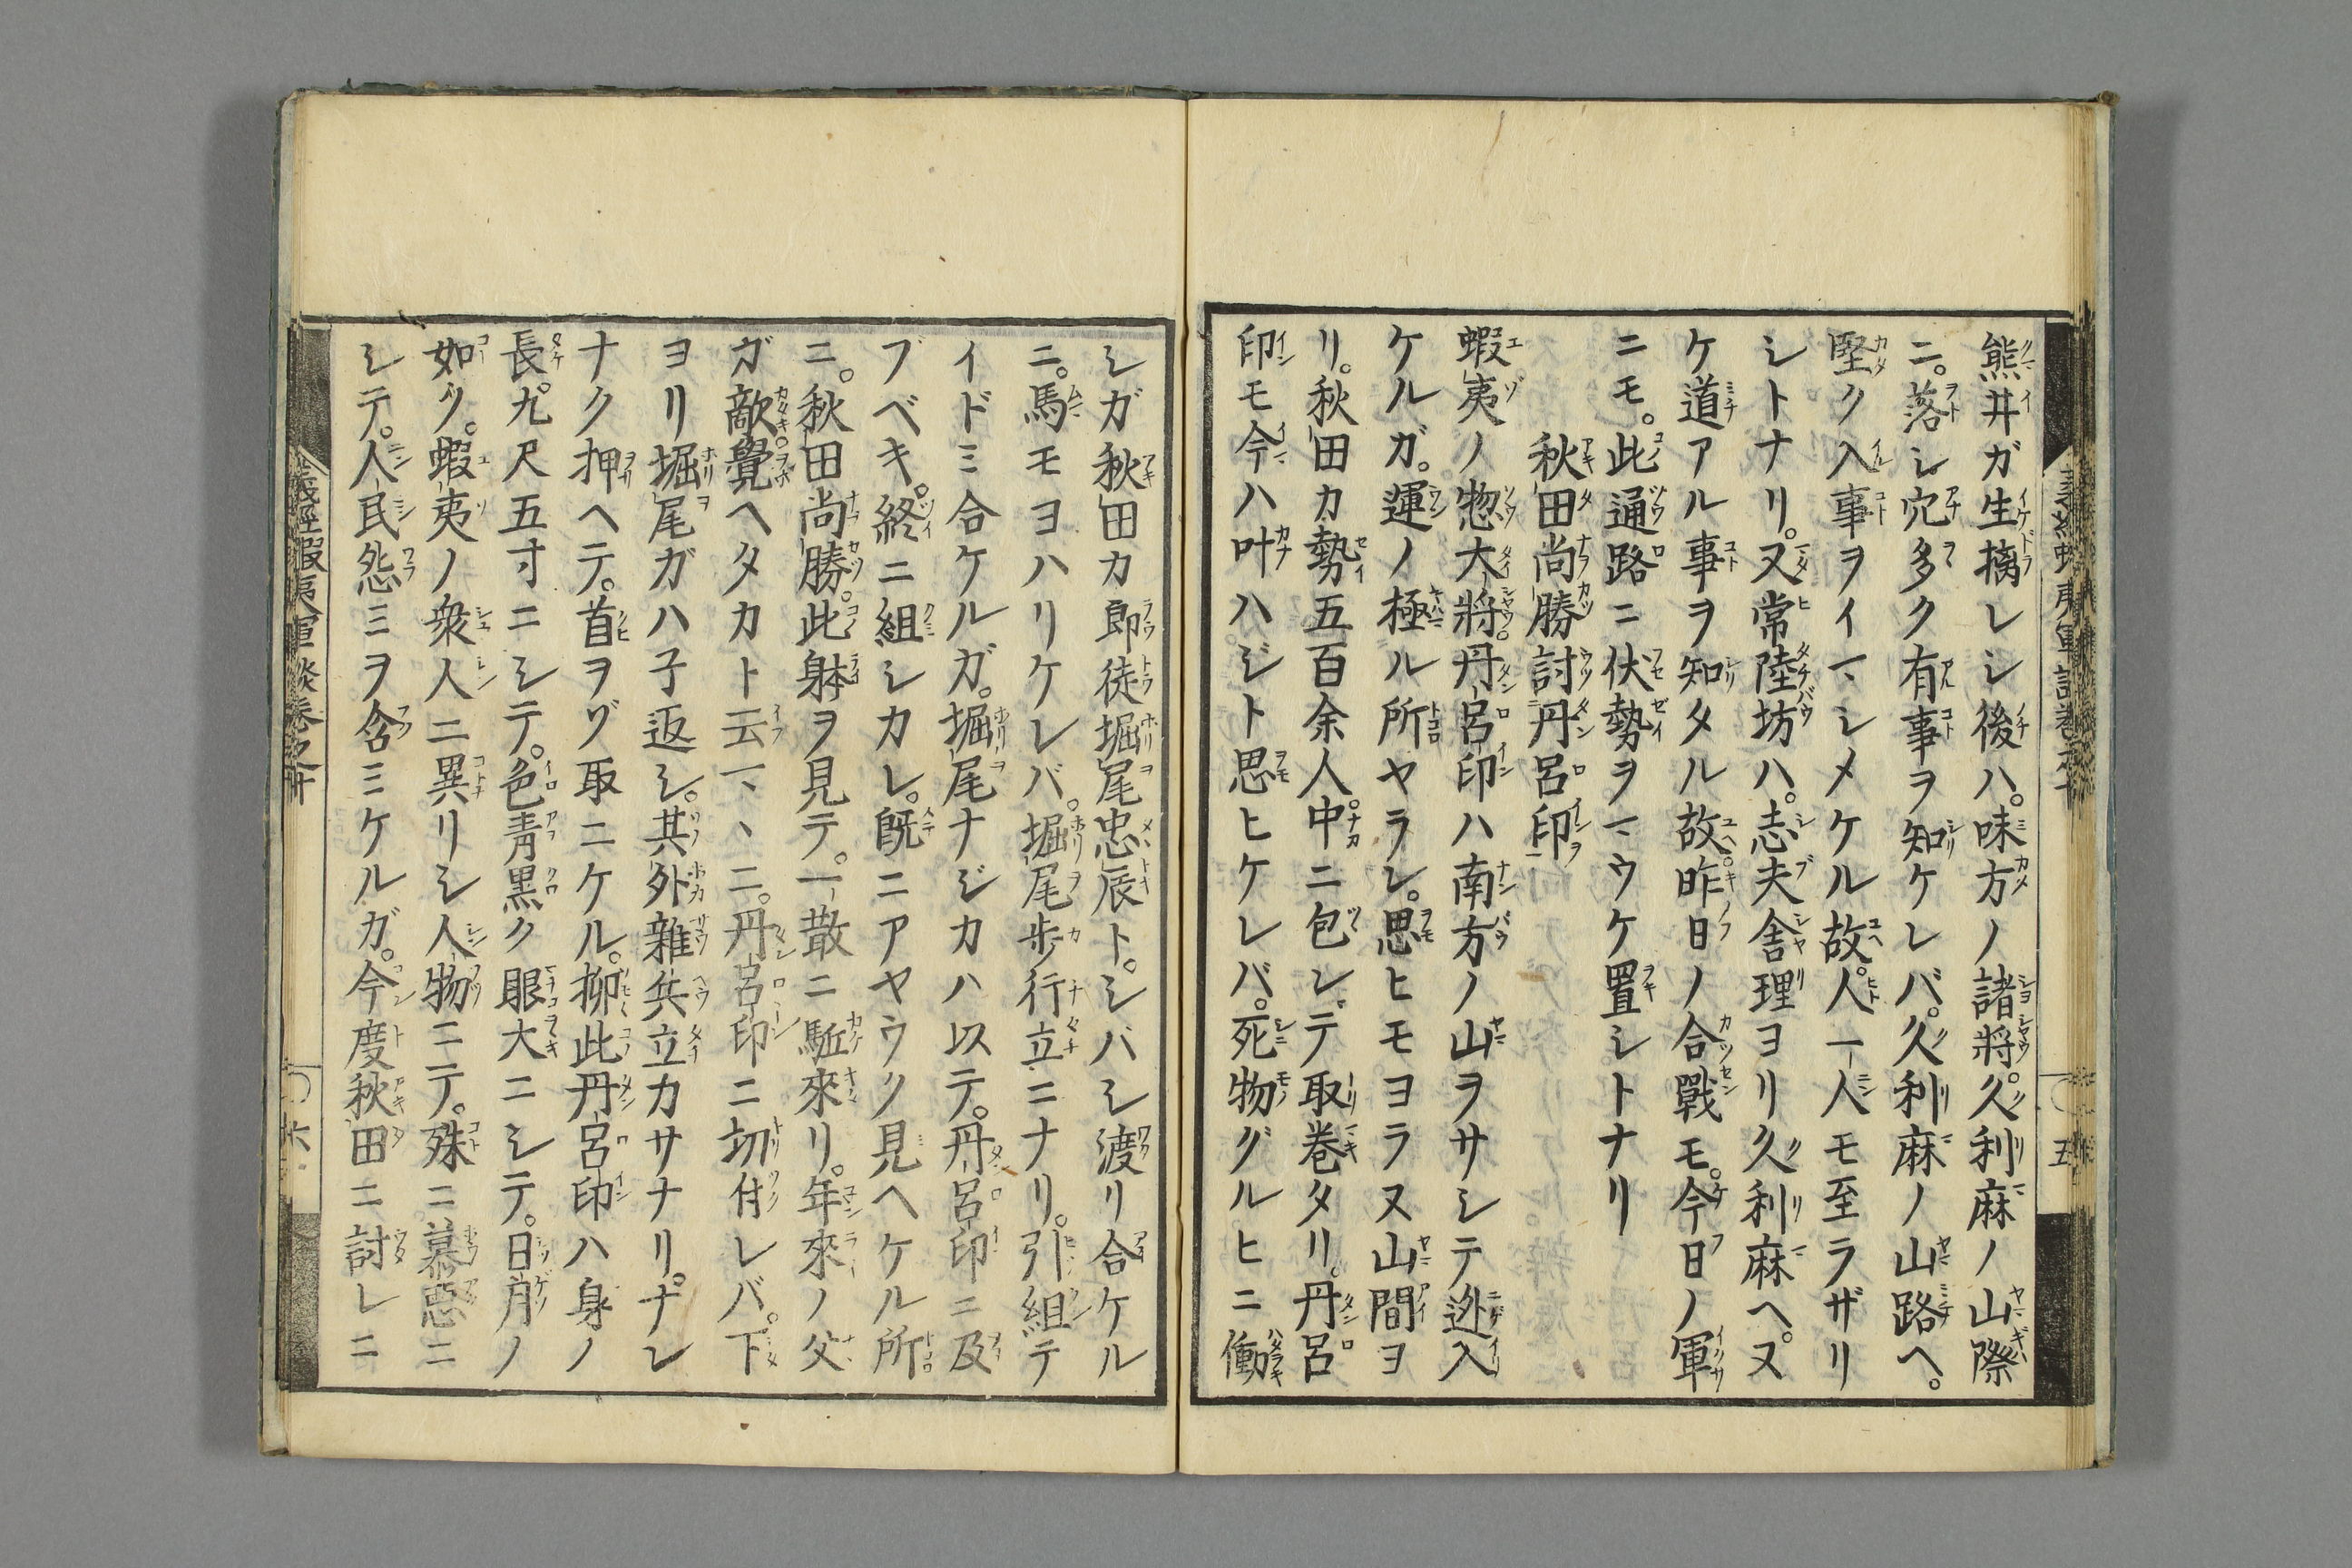 熊井ガ生擒レシ後ハ。味方ノ諸將。久利麻ノ山際
ニ。落シ穴多ク有事ヲ知ケレバ。久利麻ノ山路ヘ。
堅ク入事ヲイマシメケル故。人一人モ至ラザリ
シトナリ。又常陸坊ハ。志夫舎理ヨリ久利麻ヘ。ヌ
ケ道アル事ヲ知タル故。昨日ノ合戰モ。今日ノ軍
ニモ。此通路ニ伏勢ヲマウケ置シトナリ
秋田尚勝討丹呂印
蝦夷ノ惣大將。丹呂印ハ南方ノ山ヲサシテ迯入
ケルガ。運ノ極ル所ヤラン。思ヒモヨラヌ山間ヨ
リ。秋田カ勢五百余人。中ニ包レテ取巻タリ。丹呂
印モ今ハ叶ハジト思ヒケレバ。死物グルヒニ働
シガ秋田カ郎徒堀尾忠辰ト。シバシ渡リ合ケル
ニ。馬モヨハリケレバ。堀尾歩行立ニナリ。引組テ
イドミ合ケルガ。堀尾ナジカハ以テ。丹呂印ニ及
ブベキ。終ニ組シカレ。既ニアヤウク見ヘケル所
ニ。秋田尚勝。此躰ヲ見テ。一散ニ駈來リ。年來ノ父
ガ敵。覺ヘタカト云マヽニ。丹呂印ニ切付レバ。下
ヨリ堀尾ガハ子返シ。其外雜兵立カサナリ。ナン
ナク押ヘテ。首ヲゾ取ニケル。抑此丹呂印ハ身ノ
長。九尺五寸ニシテ。色青黒ク眼大ニシテ。日月ノ
如ク。蝦夷ノ衆人ニ異リシ人物ニテ。殊ニ暴惡ニ
シテ。人民怨ミヲ含ミケルガ。今度秋田ニ討レニ
義經蝦夷軍談巻之十
六
五